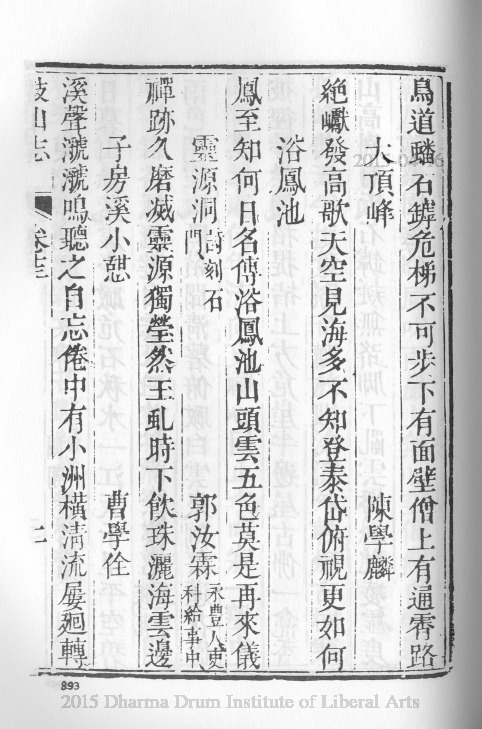 鳥道蟠石鏬危梯不可步下有面壁僧上有通霄路
大頂峰 陳學麟
絶巘發高歌天空見海多不知登泰岱俯視更如何
浴鳳池
鳳至知何日名傳浴鳳池山頭雲五色莫是再來儀
靈源洞詩刻石門 郭汝霖永豐人吏科給事中
禪跡久磨滅靈源獨瑩然玉虬時下飲珠灑海雲邊
子房溪小憇 曹學佺
溪聲㶁㶁鳴聽之自忘倦中有小洲橫清流屢廻轉
鼓山志 卷十三
893
2015 Dharma Drum Institute of Liberal Arts